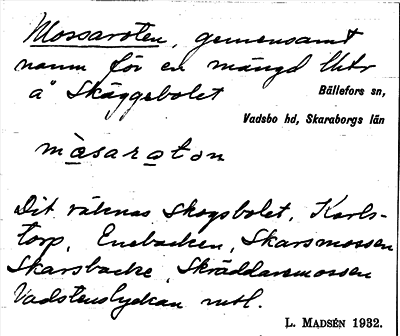 Mossaroten, gemensamt
namn för en mängd lhtr
å Skäggebolet
Bällefors sn,
Vadsbo hd, Skaraborgs län
mɑ̀saratɷn
Dit räknas Skogsbolet, Karls-
torp, Enebacken, Skarsmossen
Skarsbacke, Skräddaremossen
Vadstenslyckan mfl.
L. MADSÉN 1932.